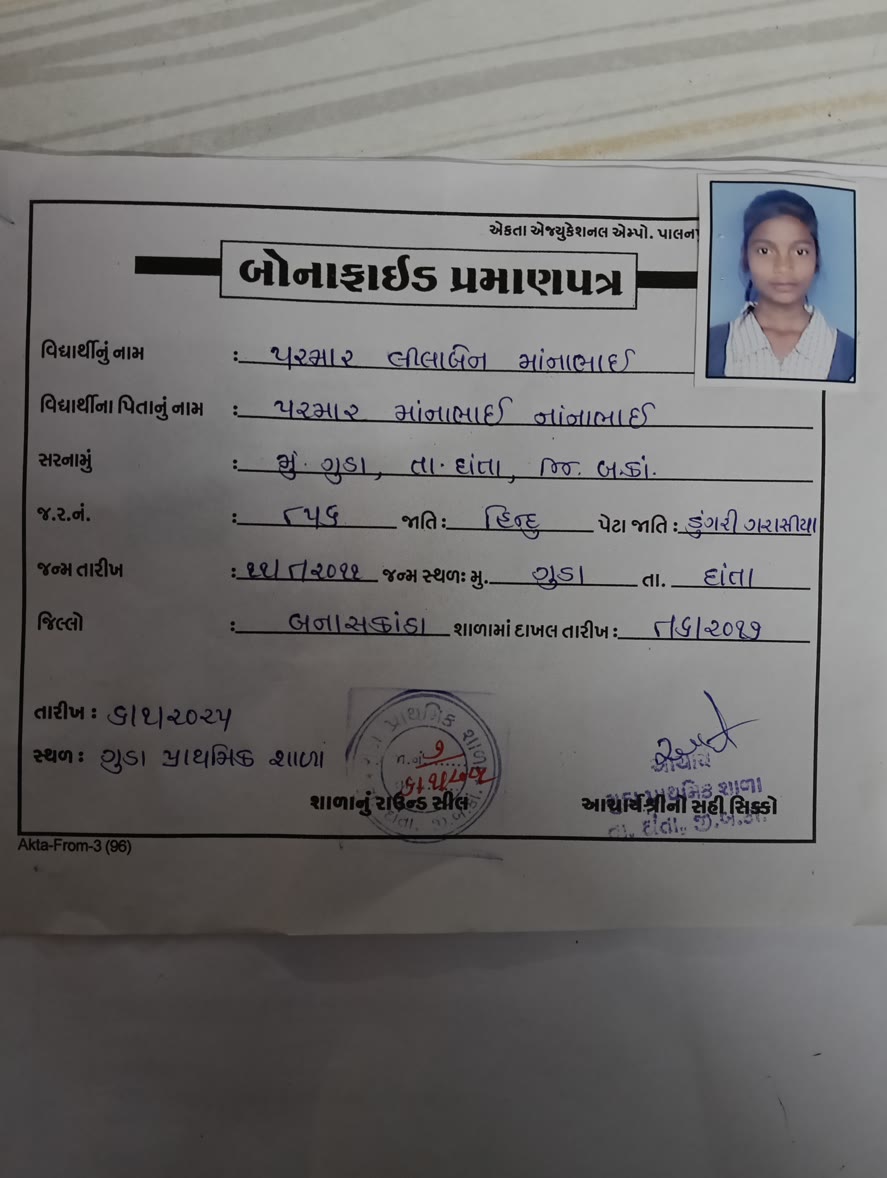 એકતા એજ્યુકેશનલ એમ્પો. પાલન
બોનાફાઈડ પ્રમાણપત્ર
વિદ્યાર્થીનું નામ : પરમાર લીલાબેન માંનાભાઈ
વિદ્યાર્થીના પિતાનું નામ : પરમાર માંનાભાઈ નાંનાભાઈ
સરનામું : મું. ગુડા, તા. દાંતા, જિ. બ.કાં.
જ.ર.નં. : ૮૫૬ જાતિ : હિન્દુ પેટા જાતિ : ડુંગરી ગરાસીયા
જન્મ તારીખ : ૧૧/૮/૨૦૧૧ જન્મ સ્થળઃ મુ. ગુડા તા. દાંતા
જિલ્લો : બનાસકાંઠા શાળામાં દાખલ તારીખ : ૮/૬/૨૦૧૭
તારીખ : ૬/૧/૨૦૨૫
સ્થળ : ગુડા પ્રાથમિક શાળા
પ્રાથમિક શાળા
આચાર્ય
પ્રાથમિક શાળા
તા. દાંતા. જી.બ.કાં.
શાળાનું રાઉન્ડ સીલ આચાર્યશ્રીની સહી સિક્કો
Akta-From-3 (96)